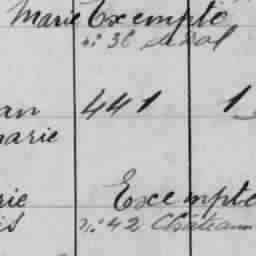 Marie Exempte
n: 36
an 441 1
marie
rie Exempte
is n: 42 Chateau